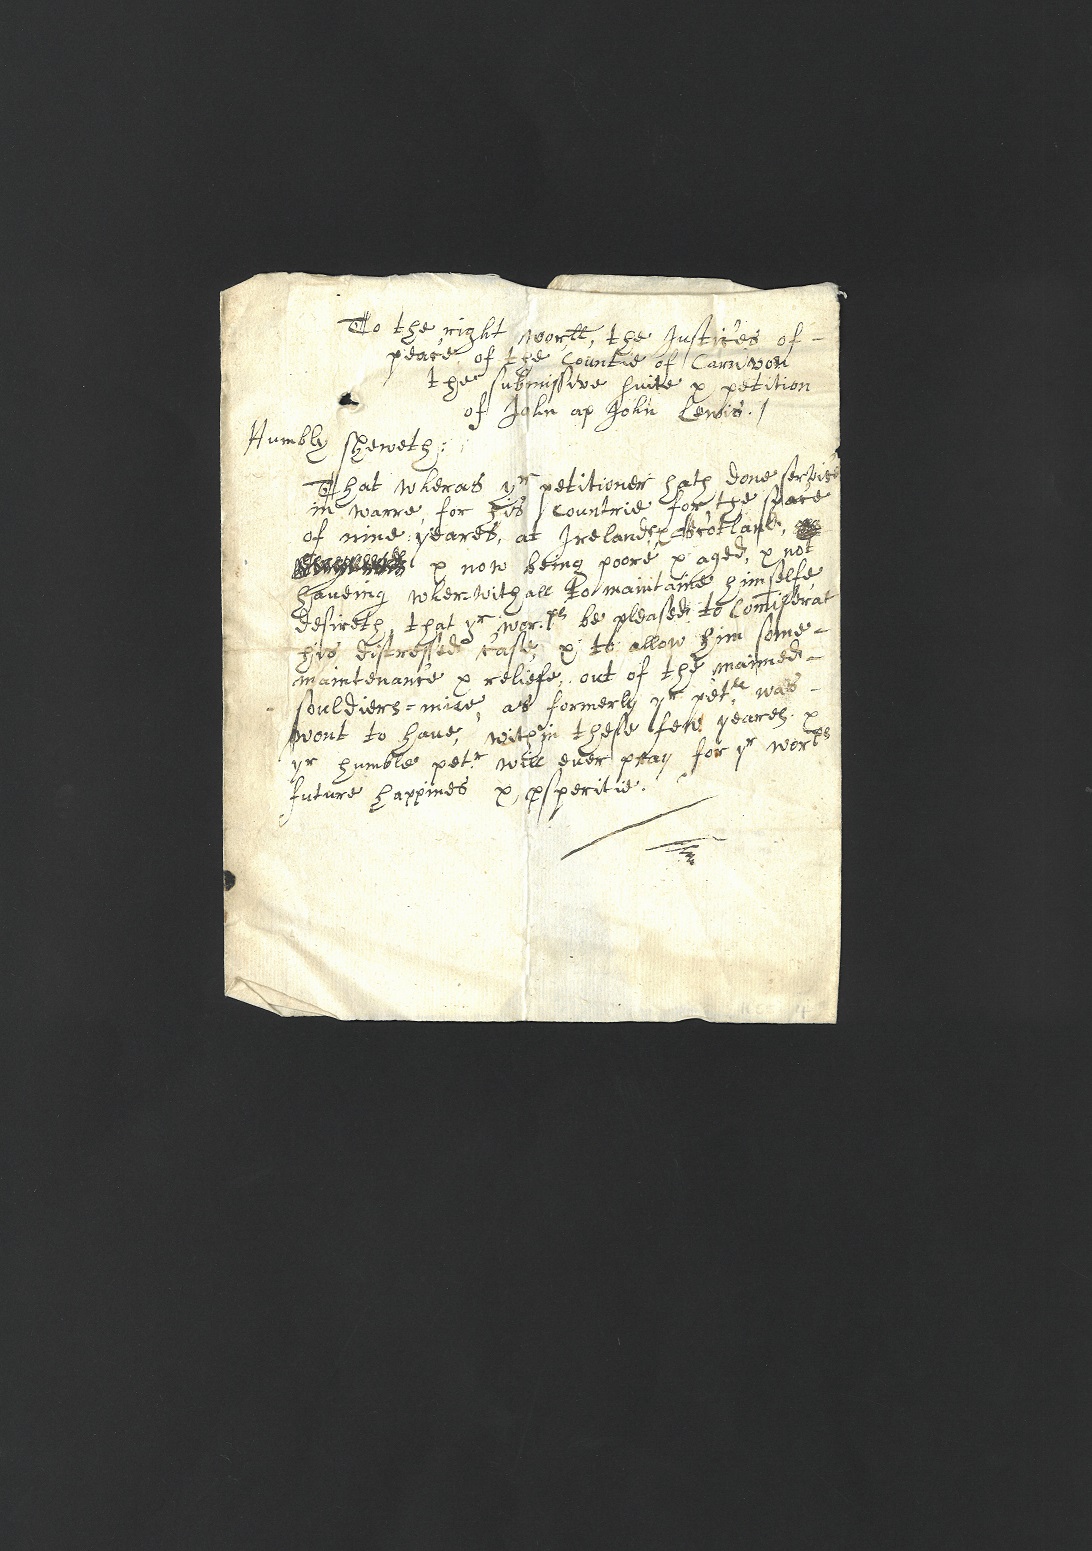 To the right worll, the Justices of -
peace of the Countie of Carnvon
the submissive suite & petition
of John ap John Lewis. /
Humbly sheweth:
That wheras yr petitioner hath done service
in warre, for his Countrie for, the space
of nine yeares, at Ireland, & Scotland,
& now being poore & aged, & not
haveing wher=withall to maintaine himselfe
desireth that yr worps be pleased to Comiserat
his distressed case, & to allow him some-
maintenance & reliefe, out of the maimed-
souldiers=mize, as formerly yr petr was -
wont to have, within these few yeares. &
yr humble petr will ever pray for yr worps
future happines & psperitie.